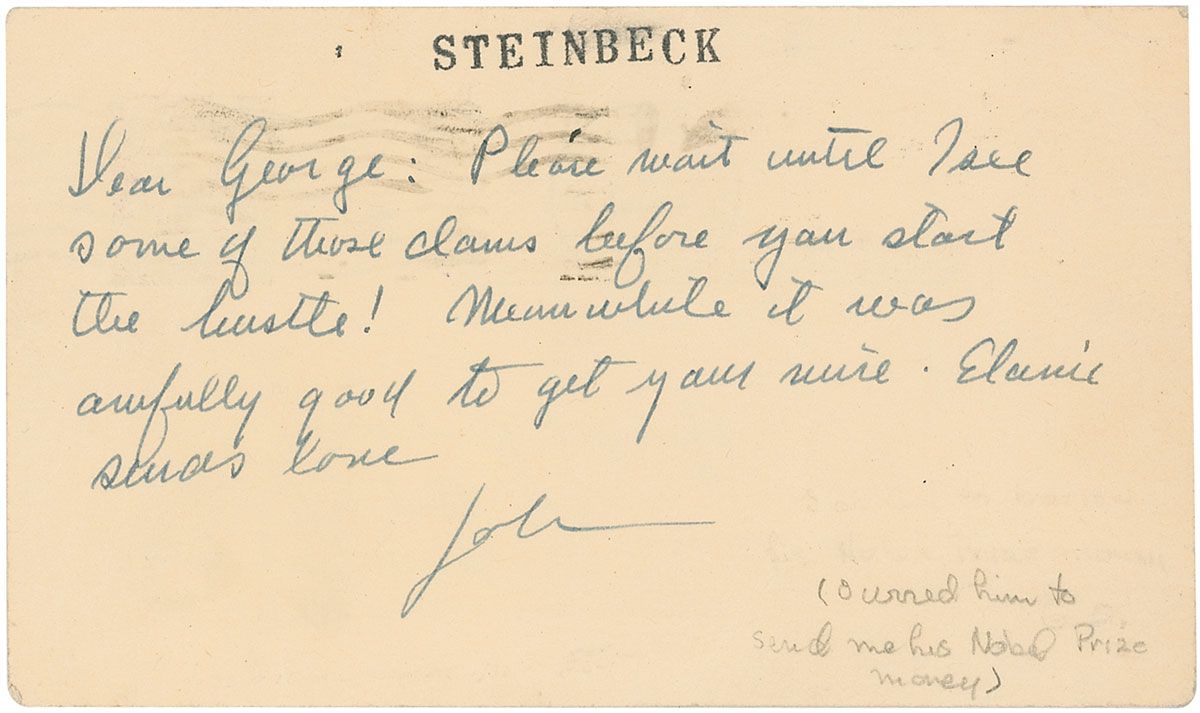 STEINBECK
Dear George: Please wait until I see
some of those clams before you start
the hustle! Meanwhile it was
awfully good to get your wire. Elaine
sends love
John
him to
send me his Nobel Prize
money)